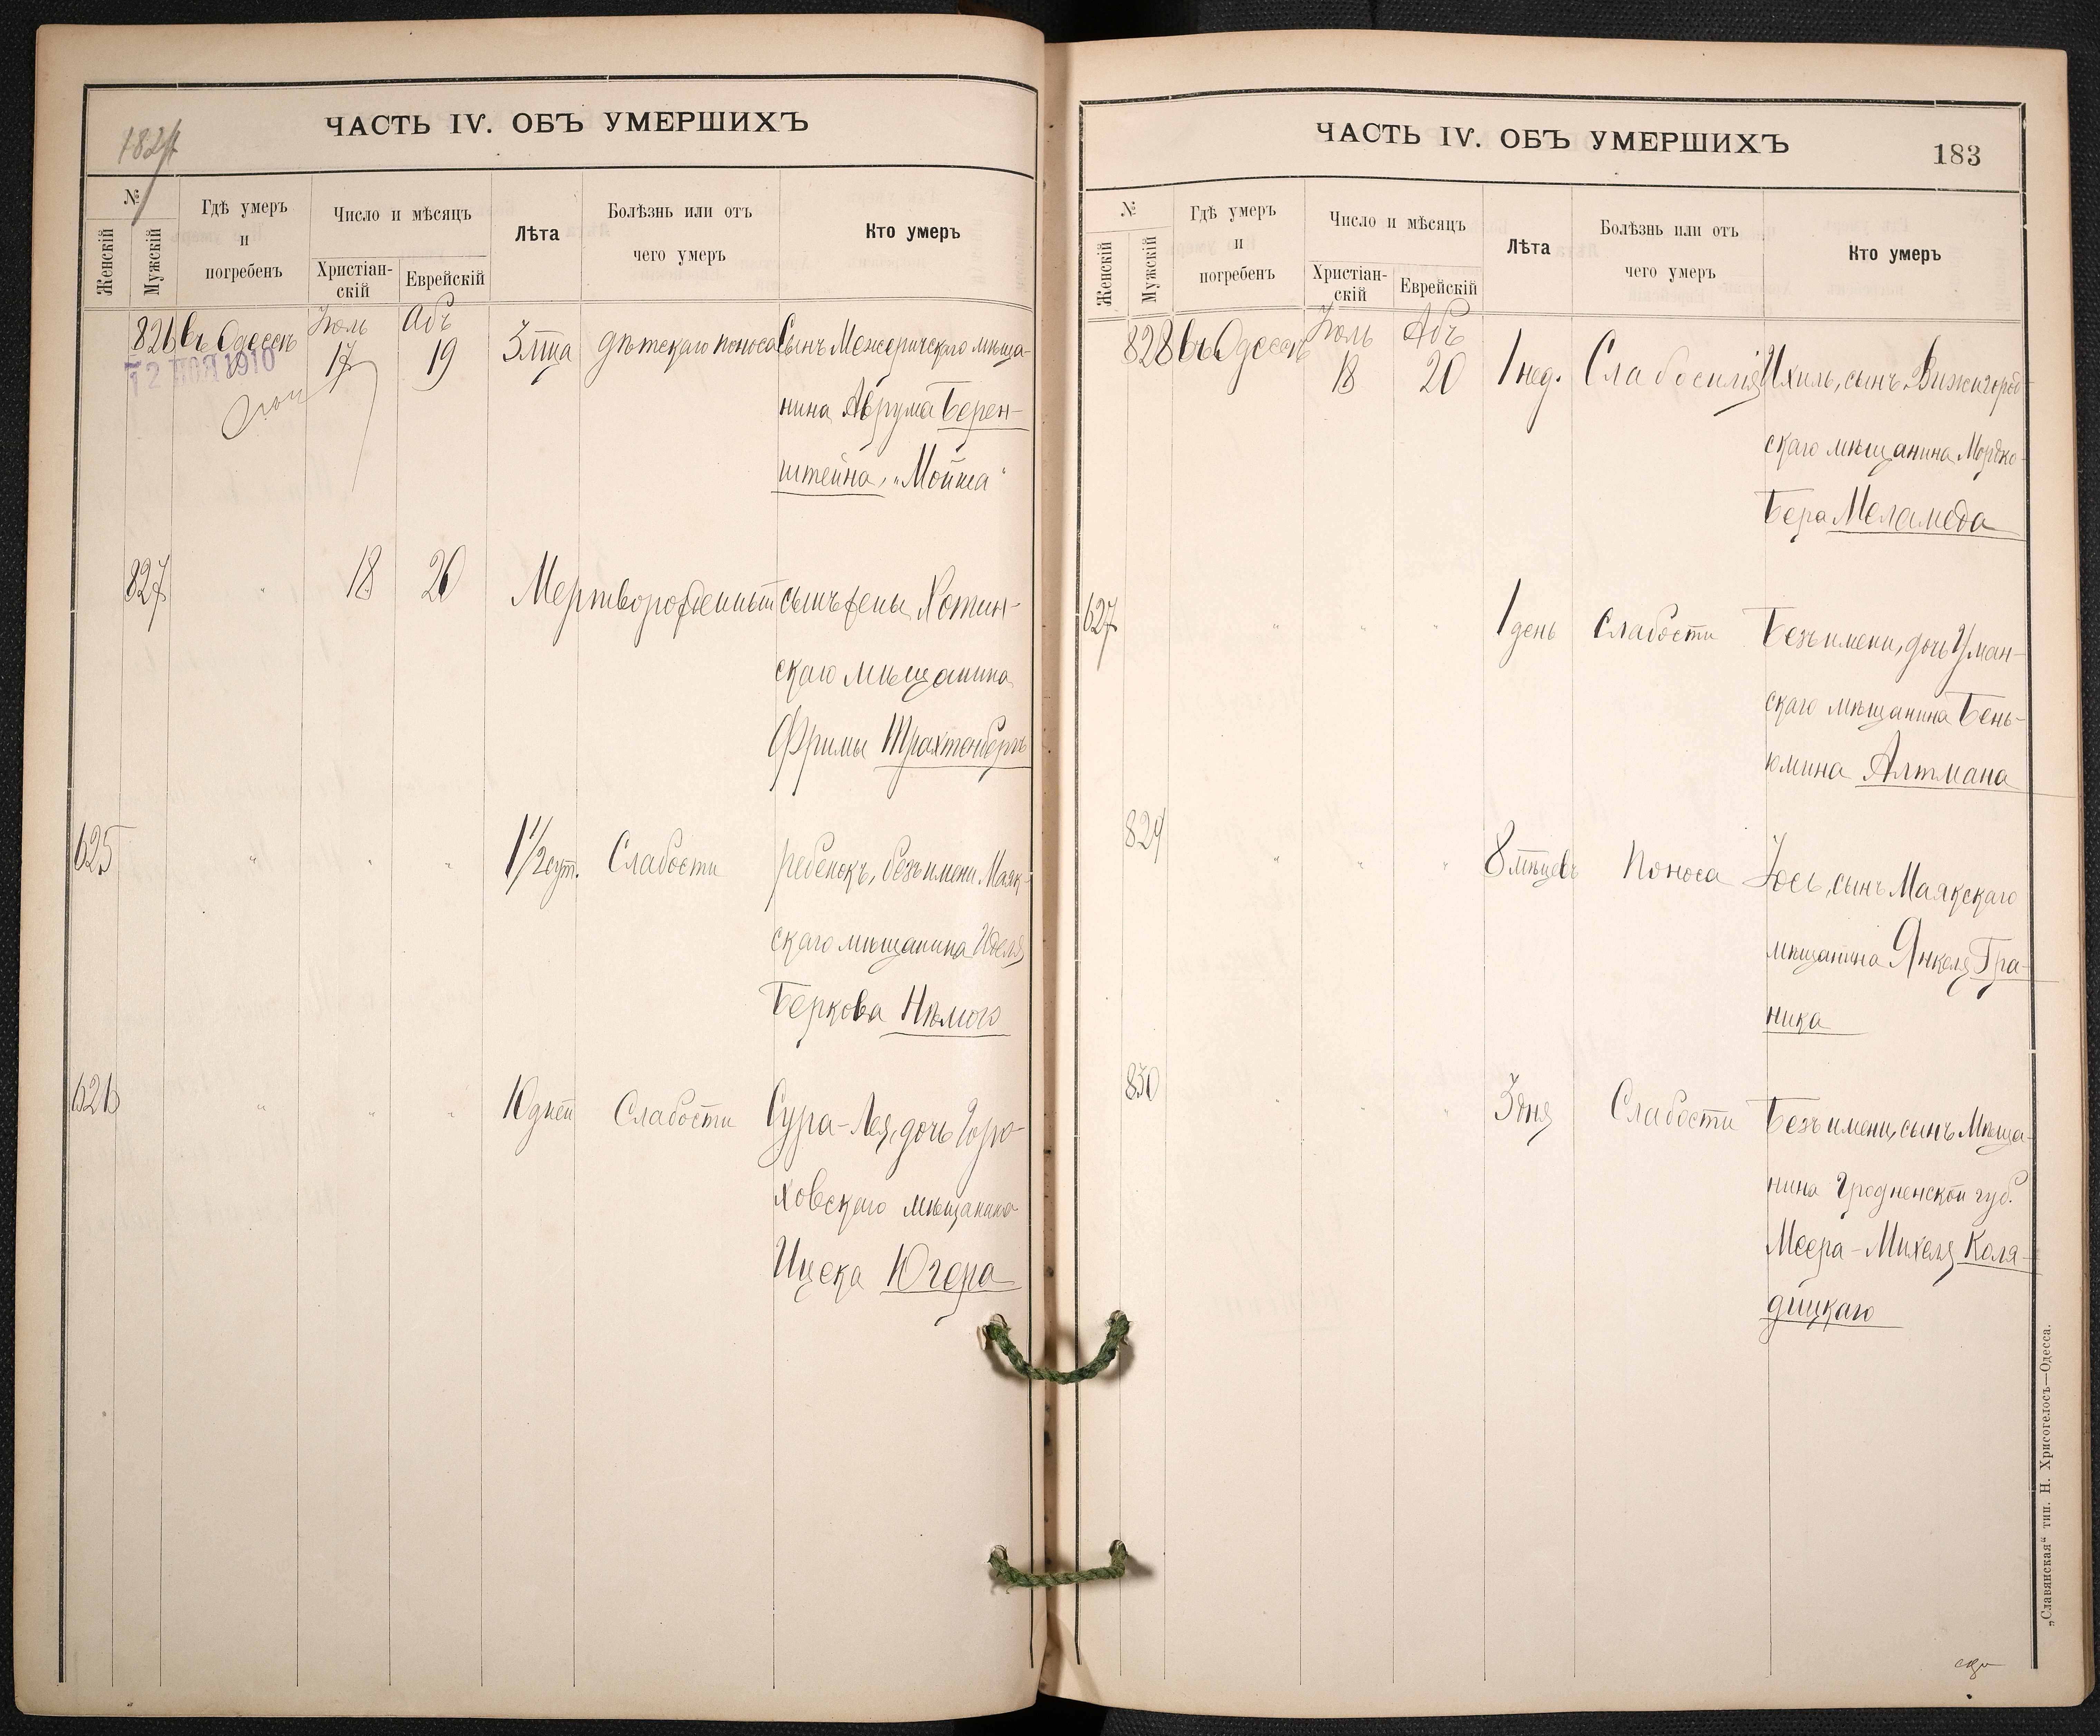 ЧАСТЬ IV. ОБЪ УМЕРШИХЪ
№
Женскій
Мужскій
Гдѣ умеръ
и
погребенъ
Число и мѣсяцъ
Христіан-
скій
Еврейскій
Лѣта
Болѣзнь или отъ
чего умеръ
Кто умеръ
Іюль Абъ
826 въ Одессѣ 17 19 3 мѣца дѣтскаго поноса Сынъ Межеричскаго мѣща-
12 НОЯ 1910
нина Аврума Берен-
штейна, „Мойша"
827 " 18 20 Мертворожденный сынъ жены Хотин-
скаго мѣщанина
Фримы Трахтенбергъ
625 " " " 1 1/2 сут. Слабости ребенокъ, безъ имени Маяк-
скаго мѣщанина Иделя
Беркова Нѣмого
626 " " " 10 дней Слабости Сура-Лея, дочь Горо-
ховскаго мѣщанина
Ицека Югера
ЧАСТЬ IV. ОБЪ УМЕРШИХЪ
183
№
Женскій
Мужскій
Гдѣ умеръ
и
погребенъ
Число и мѣсяцъ
Христіан-
скій
Еврейскій
Лѣта
Болѣзнь или отъ
чего умеръ
Кто умеръ
Іюль Абъ
828 въ Одессѣ 18 20 1 нед. Слабосилія Ихиль, сынъ Вижгород-
скаго мѣщанина Мордко-
Бера Меламеда
627 " " " 1 день Слабости Безъ имени, дочь Уман-
скаго мѣщанина Бень-
юмина Алтмана
829 " " " 8 мѣцевъ Поноса Іось, сынъ Маякскаго
мѣщанина Янкеля Гра-
ника
830 " " " 3 дня Слабости Безъ имени, сынъ Мѣща-
нина Гродненской губ.
Меера-Михеля Коля-
дицкаго
„Славянская" тип. Н. Хрисогелосъ—Одесса.